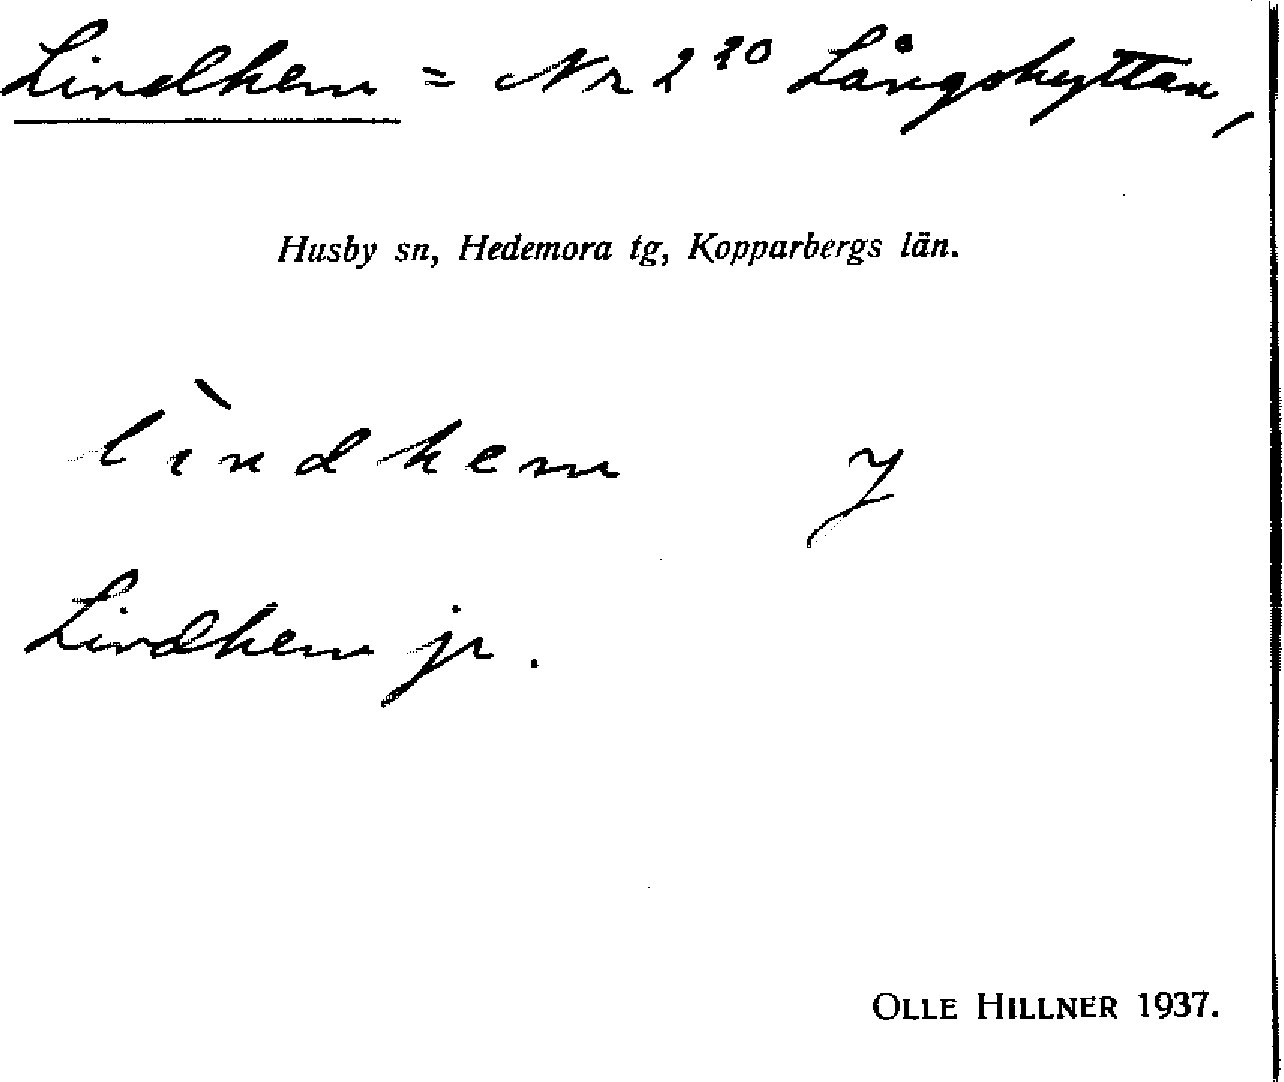 Lindhem = Nr 2²⁰ Långshyttan,
Husby sn, Hedemora tg, Kopparbergs län.
lìndhem J
Lindhem jr.
OLLE HILLNER 1937.